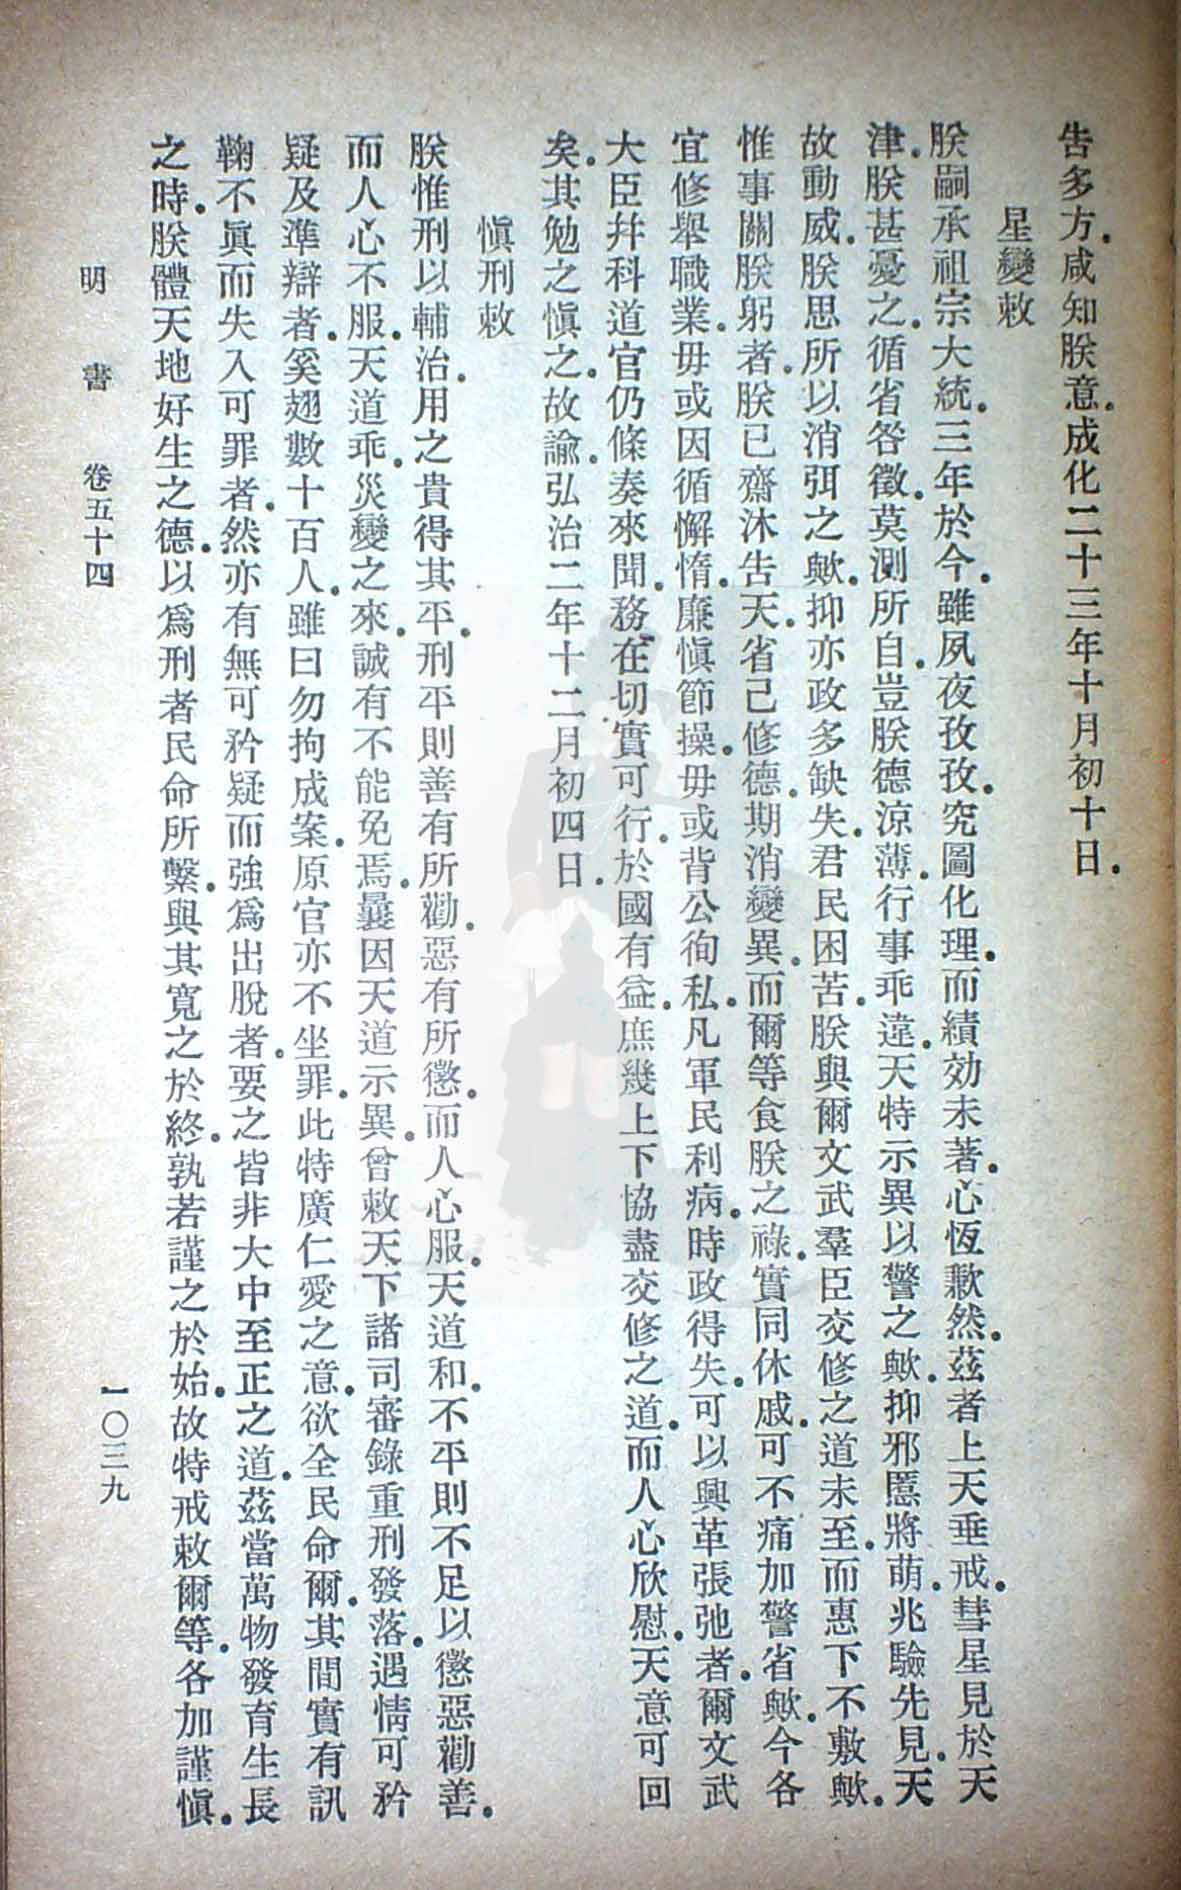 告多方。咸知朕意。成化二十三年十月初十日。
星變敕
朕嗣承祖宗大統。三年於今。雖夙夜孜孜。究圖化理。而績効未著。心恆歉然。茲者上天垂戒。彗星見於天
津。朕甚憂之。循省咎徵。莫測所自。豈朕德涼薄。行事乖違。天特示異以警之歟。抑邪慝將萌。兆驗先見。天
故動威。朕思所以消弭之歟。抑亦政多缺失。君民困苦。朕與爾文武羣臣交修之道未至。而惠下不敷歟。
惟事關朕躬者。朕已齋沐告天。省己修德。期消變異。而爾等食朕之祿。實同休戚。可不痛加警省歟。今各
宜修舉職業。毋或因循懈惰。廉愼節操。毋或背公徇私。凡軍民利病。時政得失。可以興革張弛者。爾文武
大臣幷科道官仍條奏來聞。務在切實可行。於國有益。庶幾上下協盡交修之道。而人心欣慰。天意可回
矣。其勉之愼之。故諭。弘治二年十二月初四日。
愼刑敕
朕惟刑以輔治。用之貴得其平。刑平則善有所勸。惡有所懲。而人心服。天道和。不平則不足以懲惡勸善。
而人心不服。天道乖。災變之來。誠有不能免焉。曩因天道示異。曾敕天下諸司審錄重刑發落。遇情可矜
疑及準辯者。奚翅數十百人。雖曰勿拘成案。原官亦不坐罪。此特廣仁愛之意。欲全民命爾。其間實有訊
鞫不眞而失入可罪者。然亦有無可矜疑而強爲出脫者。要之皆非大中至正之道。茲當萬物發育生長
之時。朕體天地好生之德。以爲刑者民命所繫。與其寬之於終。孰若謹之於始。故特戒敕爾等。各加謹愼。
明書 卷五十四 一〇三九